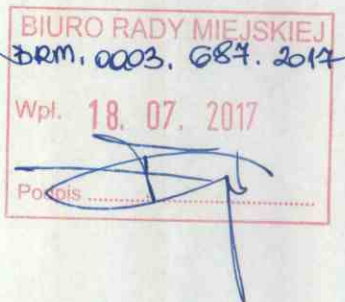 BIURO RADY MIEJSKIEJ
BRM. 0003. 687. 2017
Wpł. 18. 07. 2017
Podpis ..............................